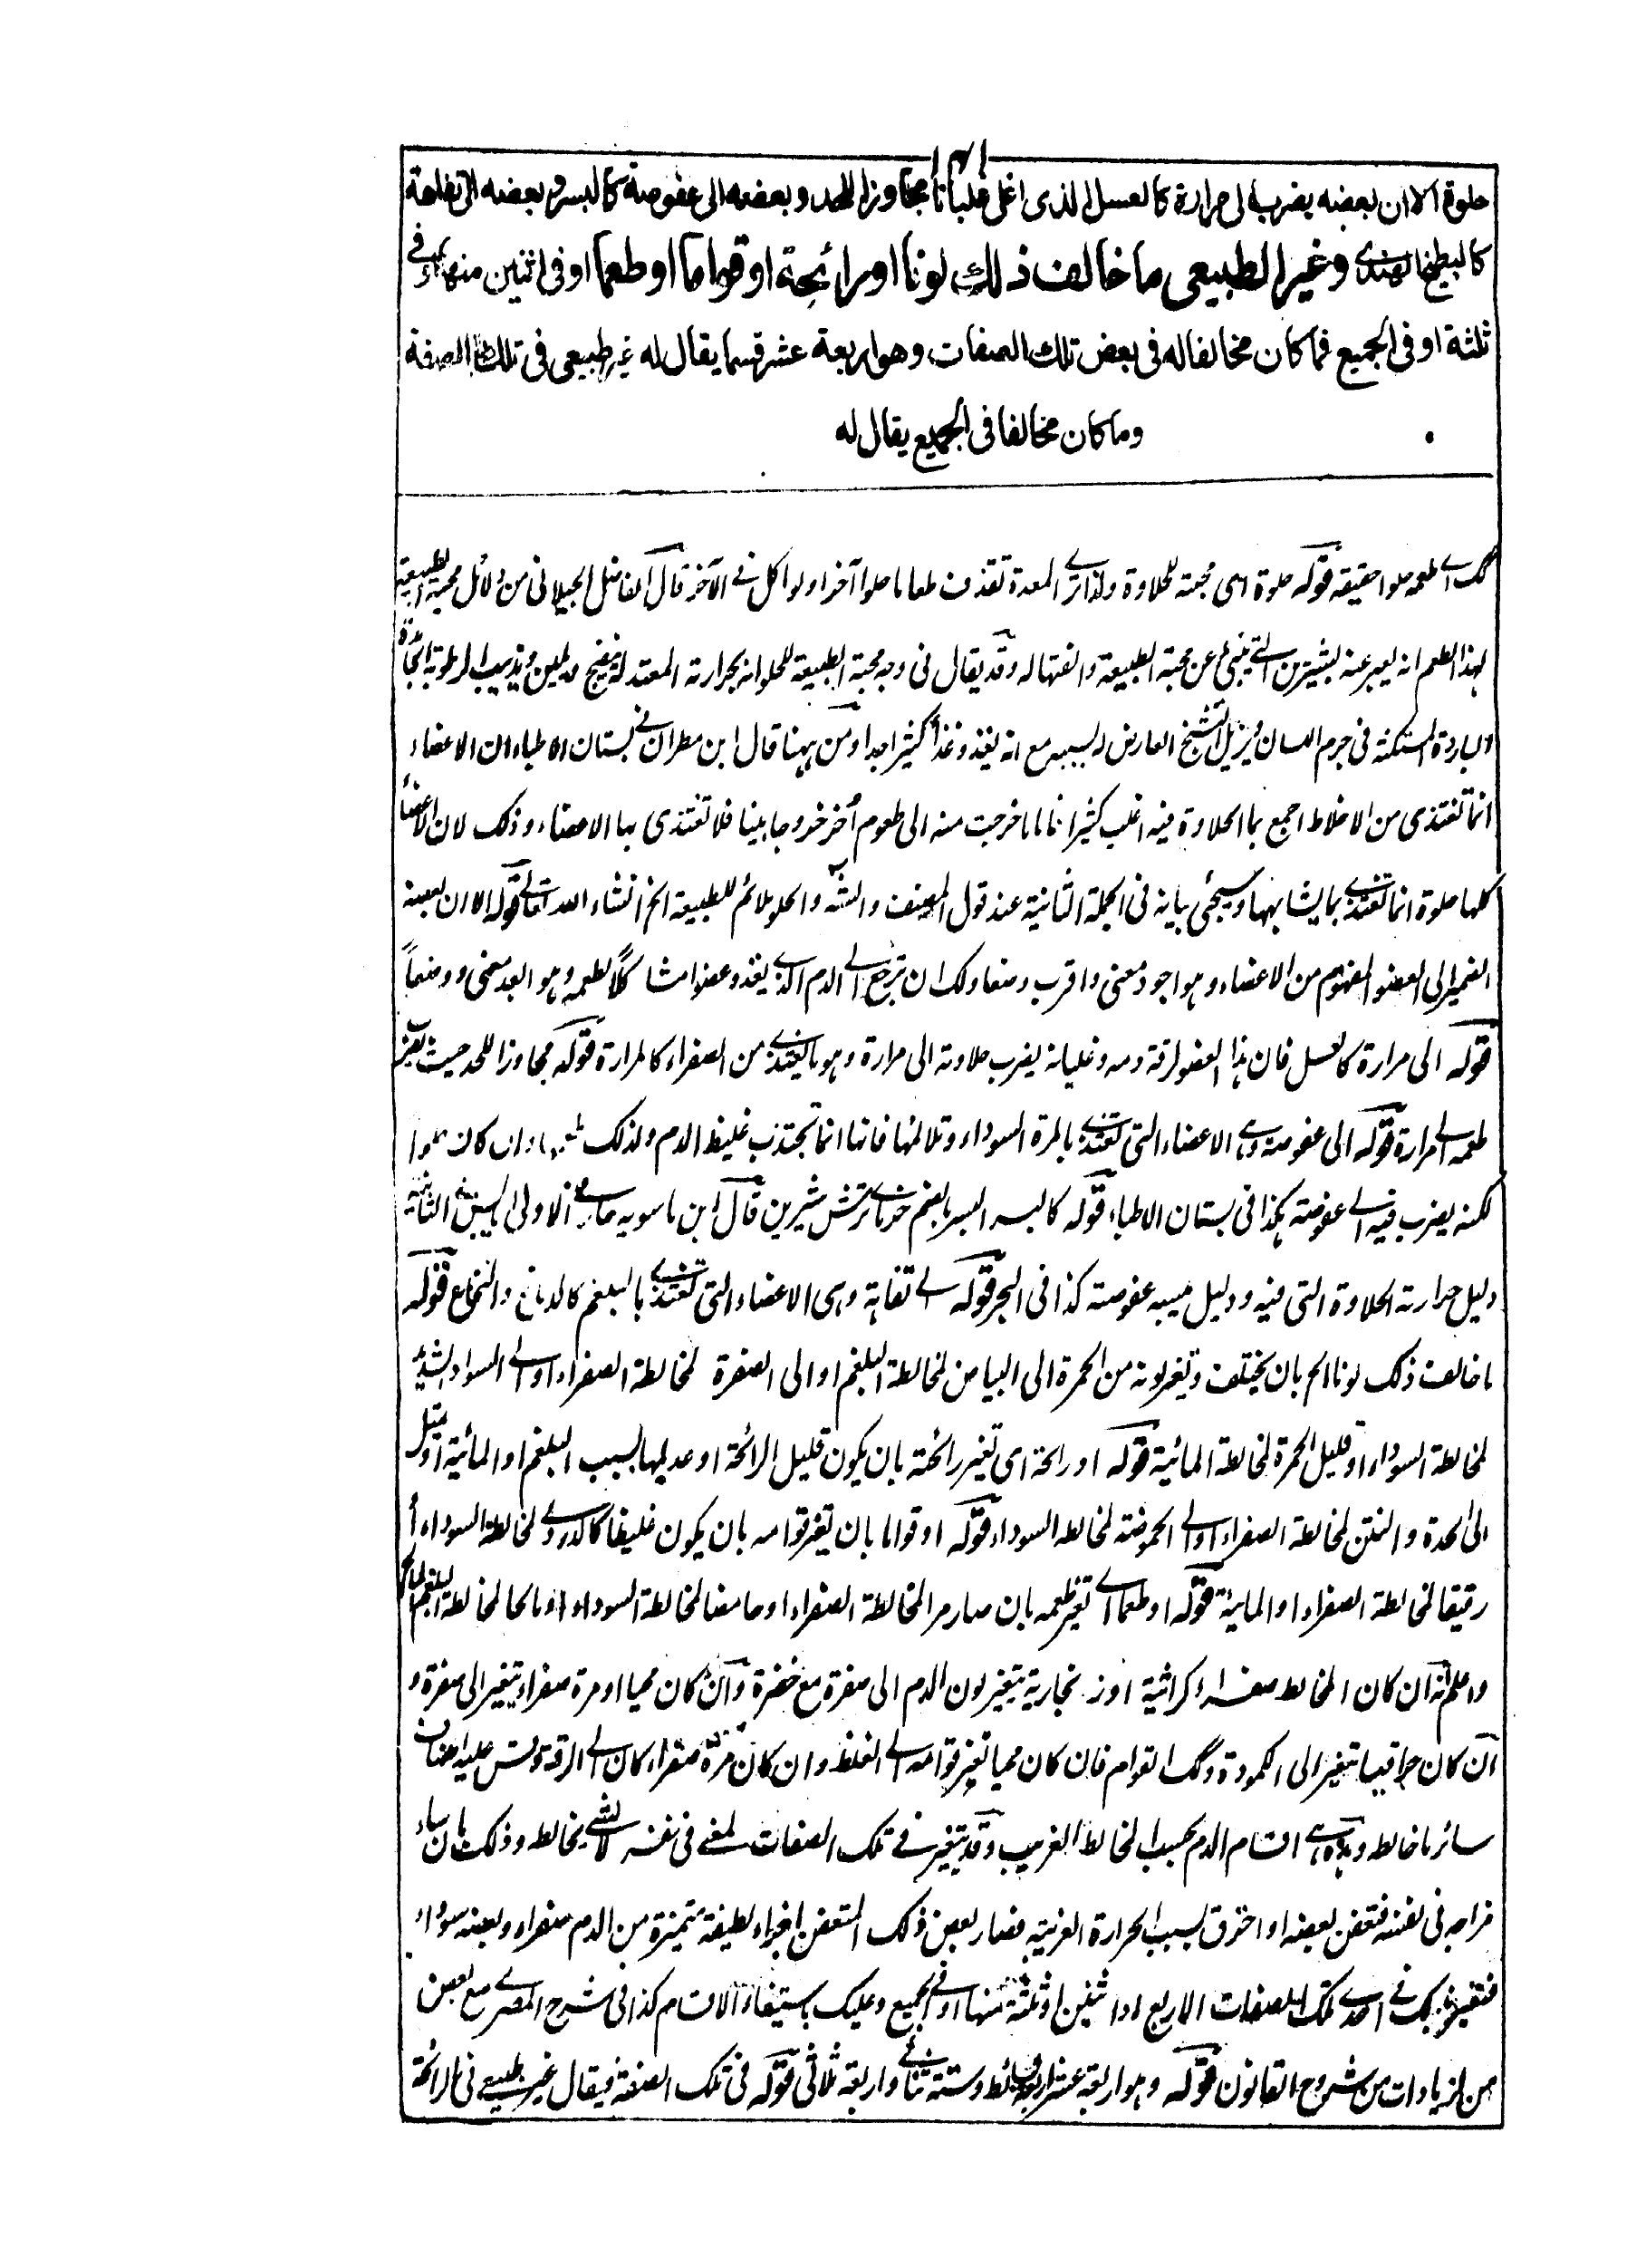 ١٣١
حلوة الا ان بعضه يضرب الى مرارة كالعسل الذى اغلى غليانا مجاوزا للحد وبعضه الى عفوصة كالبسر وبعضه الى تفاهة
كالبطيخ الهندى وغير الطبيعى ما خالف ذلك لونا او رائحة او قواما او طعما او فى اثنين منها او فى
ثلثة او فى الجميع فما كان مخالفا له فى بعض تلك الصفات وهو اربعة عشر قسما يقال له غير طبيعى فى تلك الصفة
وما كان مخالفا فى الجميع يقال له
اى طعمه حلوا حقيقة قوله حلوة اى محبته للحلاوة ولذا ترى المعدة تقذف طعاما حلوا آخرا ولو اكل فى الآخر قال الفاضل الجيلانى من دلائل محبة الطبيعة
لهذا الطعم انه يعبر عنه بشيرين التى ينبئ عن محبة الطبيعة والفتها له وقد يقال فى وجه محبة الطبيعة للحلو انه بحرارته المعتدلة ينضج ويلين ويذيب الرطوبة الجامدة
والباردة المستكنة فى جرم اللسان ويزيل التشنج العارض له بسببه مع انه يغذو غذاء كثيرا جدا ومن ههنا قال ابن مطران فى بستان الاطباء ان الاعضاء
انما تغتذى من الاخلاط اجمع بما الحلاوة فيه اغلب كثيرا فاما ما خرجت منه الى طعوم أخر خروجا بينا فلا تغتذى بها الاعضاء وذلك لان الاعضاء
كلها حلوة انما تغتذى بما يشابهها وسيجئ بيانه فى الجملة الثانية عند قول المصنف والحلو ملائم للطبيعة الخ انشاء الله تعالى قوله الا ان بعضه
الضمير الى العضو المفهوم من الاعضاء وهو اجود معنى واقرب وضعا ولك ان ترجع الى الدم الذى يغذو عضوا مشاكلا لطعمه وهو ابعد معنى ووضعا
قوله الى مرارة كالعسل فان هذا العضو لرقة دمه وغليانه يضرب حلاوته الى مرارة وهو ما يغتذى من الصفراء كالمرارة قوله مجاوزا للحد حيث يضرب
طعمه الى مرارة قوله الى عفوصة وهى الاعضاء التى تغتذى بالمرة السوداء وتلائمها فانها انما تجتذب غليظ الدم ولذلك وان كان حلوا
لكنه يضرب فيه الى عفوصة هكذا فى بستان الاطباء قوله كالبسر البسر بالضم خرمائے ترش شيرين قال ابن ماسويه حار فى الاولى يابس فى الثانية
دليل حرارته الحلاوة التى فيه ودليل يبسه عفوصته كذا فى البحر قوله الى تفاهة وهى الاعضاء التى تغتذى بالبلغم كالدماغ والنخاع قوله
ما خالف ذلك لونا الخ بان يختلف ويتغير لونه من الحمرة الى البياض لمخالطة البلغم او الى الصفرة لمخالطة الصفراء او الى السواد الشديد
لمخالطة السوداء او قليل الحمرة لمخالطة المائية قوله او رائحة اى تغير رائحته بان يكون قليل الرائحة او عديمها بسبب البلغم او المائية او يميل
الى الحدة والنتن لمخالطة الصفراء او الى الحموضة لمخالطة السوداء قوله او قواما بان تغير قوامه بان يكون غليظا كالدردى لمخالطة السوداء أو
رقيقا لمخالطة الصفراء او المائية قوله او طعما اى تغير طعمه بان صار مرا لمخالطة الصفراء او حامضا لمخالطة السوداء او مالحا لمخالطة البلغم المالح
واعلم انه ان كان المخالط صفراء كراثية او زنجارية يتغير لون الدم الى صفرة مع خضرة وان كان محيا او مرة صفراء يتغير الى صفرة و
ان كان حراقيا تتغير الى الكمودة وكذلك القوام فان كان محيا تغير قوامه الى الغلظ وان كان مرة صفراء كان الى الرقة وقس عليه اصناف
سائر ما خالطه وهذه هى اقسام الدم بحسب المخالط الغريب وقد يتغير فى تلك الصفات لمعنى فى نفسه لا لشئ يخالطه وذلك بان ساء
مزاجه فى نفسه فتعفن بعضه او احترق بسبب الحرارة الغريبة فصار بعض ذلك المتعفن اجزاء لطيفة متميزة من الدم صفراء وبعضه سوداء
فتغير بذلك فى احدى تلك الصفات الاربع او اثنين او ثلثة منها او فى الجميع وعليك باستيفاء الاقسام كذا فى شرح المصرى مع بعض
من الزيادات من شروح القانون قوله وهو اربعة عشر اربعة بسائط وستة ثنائى واربعة ثلاثى قوله فى تلك الصفة فيقال غير طبيعى فى الرائحة